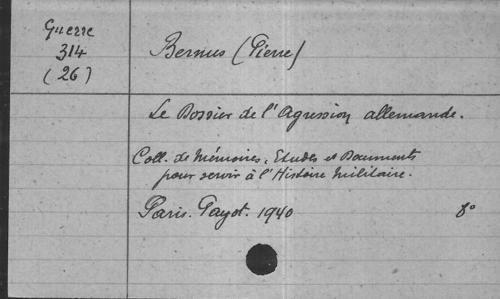 Guerre
314
(26)
Bernus (Pierre)
Le Dossier de l'Agression allemande.
Coll. de Mémoires, Etudes et Documents
pour servir à l'Histoire Militaire.
Paris. Payot. 1940 8°